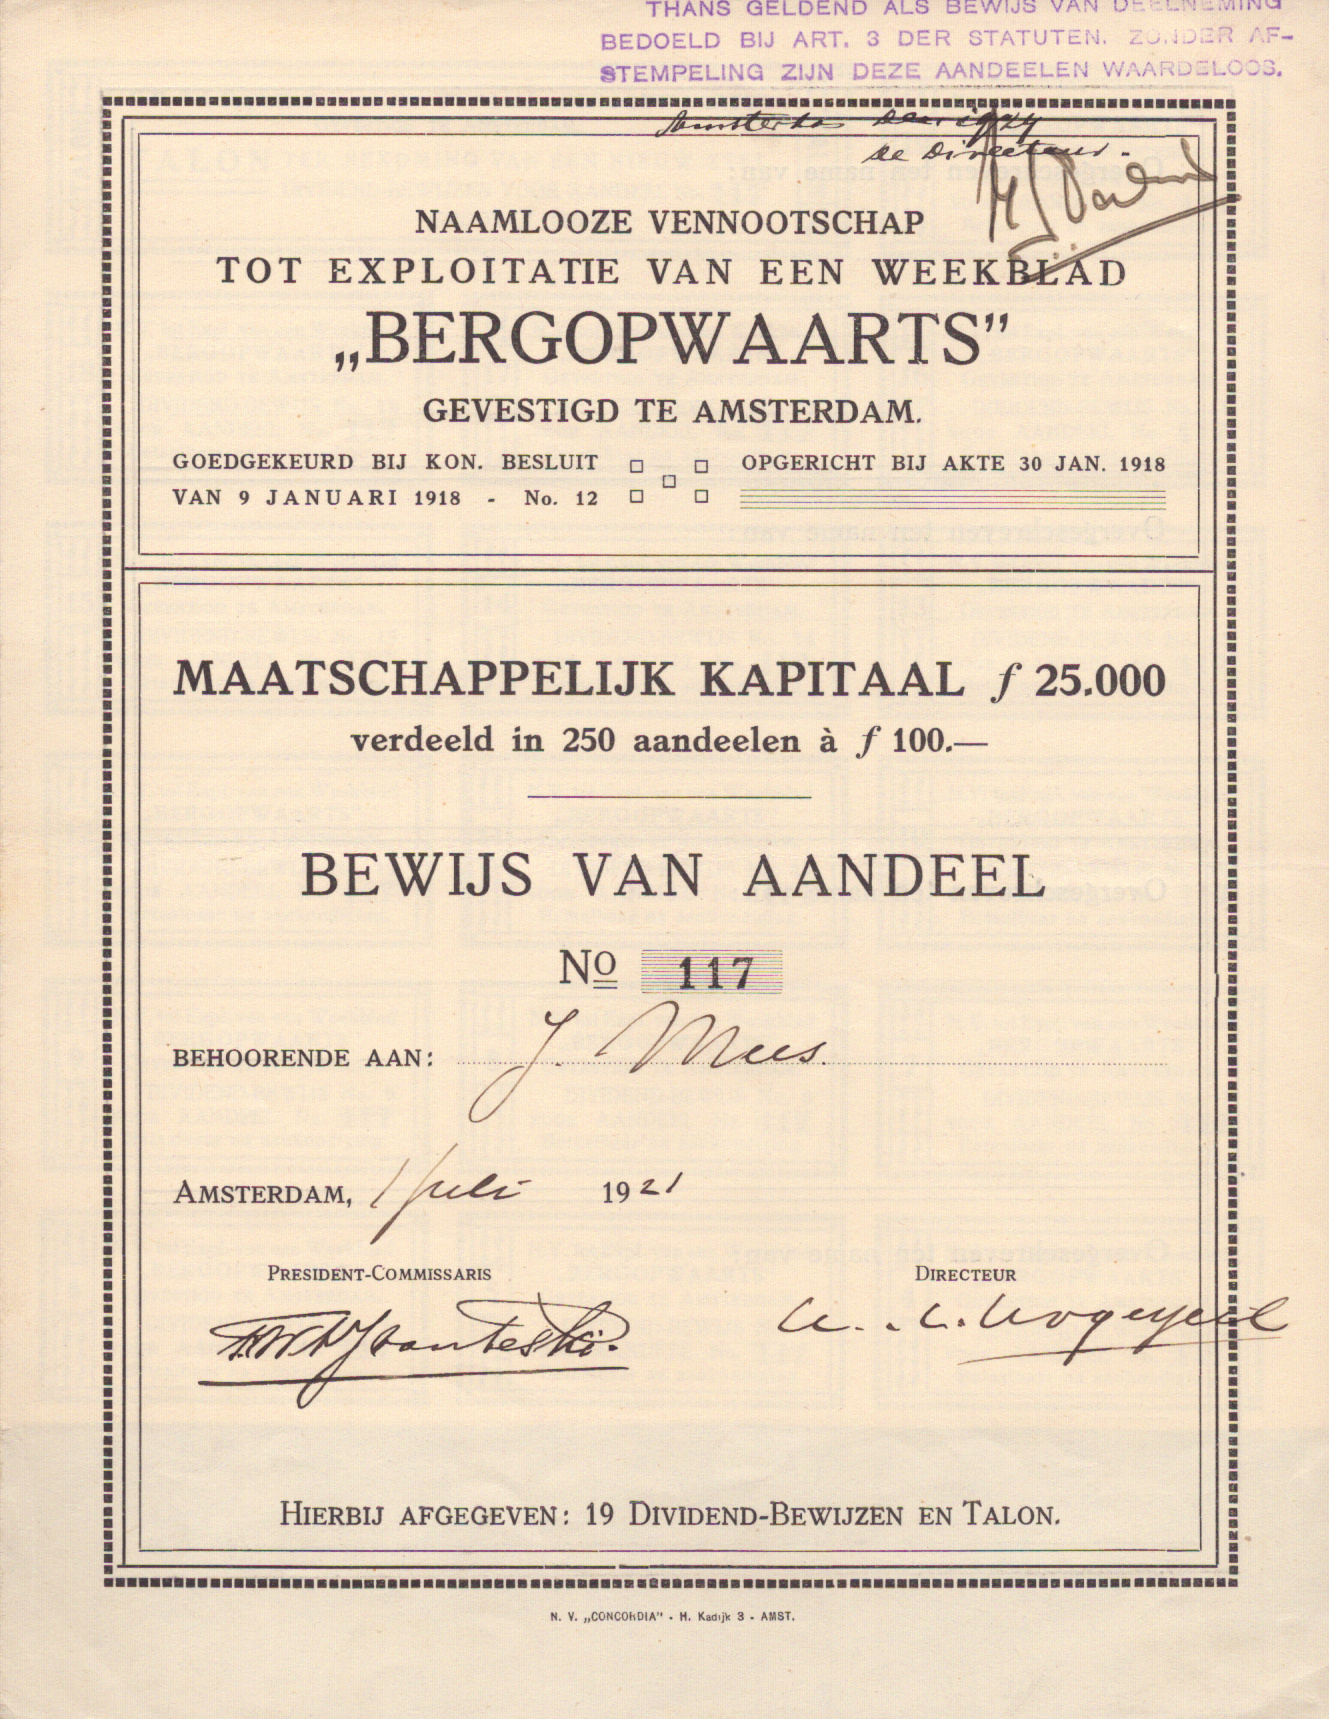 THANS GELDEND ALS BEWIJS VAN DEELNEMING
BEDOELD BIJ ART. 3 DER STATUTEN. ZONDER AF-
STEMPELING ZIJN DEZE AANDEELEN WAARDELOOS.
De Directeur.
NAAMLOOZE VENNOOTSCHAP
TOT EXPLOITATIE VAN EEN WEEKBLAD
„BERGOPWAARTS”
GEVESTIGD TE AMSTERDAM.
GOEDGEKEURD BIJ KON. BESLUIT
VAN 9 JANUARI 1918 - No. 12
OPGERICHT BIJ AKTE 30 JAN. 1918
MAATSCHAPPELIJK KAPITAAL ƒ 25.000
verdeeld in 250 aandeelen à ƒ 100.—
BEWIJS VAN AANDEEL
No 117
BEHOORENDE AAN: J. Mees.
AMSTERDAM, 1 Juli 1921
PRESIDENT-COMMISSARIS
DIRECTEUR
HIERBIJ AFGEGEVEN: 19 DIVIDEND-BEWIJZEN EN TALON.
N. V. „CONCORDIA” - H. Kadijk 3 - AMST.